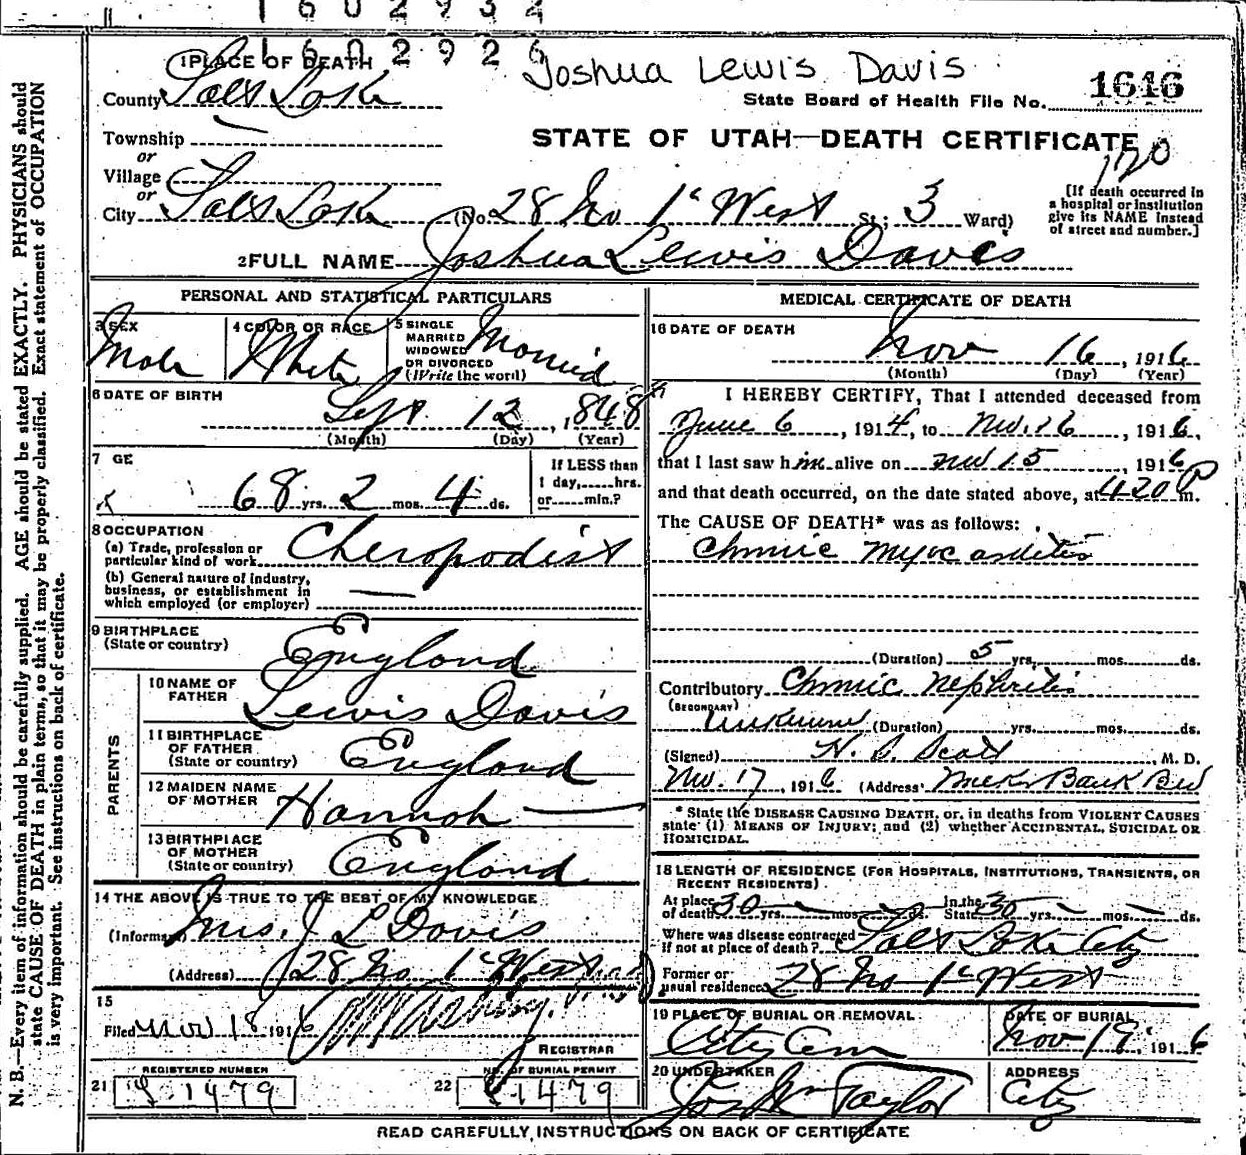 1602932
1602926
1 PLACE OF DEATH
Joshua Lewis Davis
County Salt Lake
State Board of Health File No. 1646
Township
STATE OF UTAH—DEATH CERTIFICATE
or
120
Village
or
City Salt Lake (No. 28 No 1st West St; 3 Ward)
[If death occurred in
a hospital or institution
give its NAME instead
of street and number.]
2 FULL NAME Joshua Lewis Davis
PERSONAL AND STATISTICAL PARTICULARS
3 SEX Male
4 COLOR OR RACE White
5 SINGLE
MARRIED
WIDOWED
OR DIVORCED
(Write the word) Married
6 DATE OF BIRTH
Sept. 12, 1848
(Month) (Day) (Year)
7 GE
68 yrs. 2 mos. 4 ds.
If LESS than
1 day,......hrs.
or......min.?
8 OCCUPATION
(a) Trade, profession or
particular kind of work Cheropodist
(b) General nature of industry,
business, or establishment in
which employed (or employer)
9 BIRTHPLACE
(State or country) England
PARENTS
10 NAME OF
FATHER Lewis Davis
11 BIRTHPLACE
OF FATHER
(State or country) England
12 MAIDEN NAME
OF MOTHER Hannah —
13 BIRTHPLACE
OF MOTHER
(State or country) England
14 THE ABOVE IS TRUE TO THE BEST OF MY KNOWLEDGE
(Informant) Mrs. J L Davis
(Address) 28 No 1st West
15
Filed Nov 18 1916
REGISTRAR
REGISTERED NUMBER
21 1479
NO. OF BURIAL PERMIT
22 1479
MEDICAL CERTIFICATE OF DEATH
16 DATE OF DEATH
Nov 16, 1916
(Month) (Day) (Year)
I HEREBY CERTIFY, That I attended deceased from
June 6, 1914, to Nov. 16, 1916,
that I last saw him alive on Nov 15, 1916
and that death occurred, on the date stated above, at 420 P m.
The CAUSE OF DEATH* was as follows:
Chronic Myocarditis
(Duration) 5 yrs. mos. ds.
Contributory Chronic Nephritis
(SECONDARY)
Unknown (Duration) yrs. mos. ds.
(Signed) H. S. Scott, M. D.
Nov. 17, 1916 (Address) Bank
* State the DISEASE CAUSING DEATH, or, in deaths from VIOLENT CAUSES
state (1) MEANS OF INJURY; and (2) whether ACCIDENTAL, SUICIDAL OR
HOMICIDAL.
18 LENGTH OF RESIDENCE (FOR HOSPITALS, INSTITUTIONS, TRANSIENTS, OR
RECENT RESIDENTS).
At place
of death 30 yrs. — mos. — ds. In the
State 30 yrs. — mos. — ds.
Where was disease contracted
if not at place of death? Salt Lake City
Former or
usual residence 28 No 1st West
19 PLACE OF BURIAL OR REMOVAL
City Cem
DATE OF BURIAL
Nov 19, 1916
20 UNDERTAKER
Jos Wm Taylor
ADDRESS
City
READ CAREFULLY, INSTRUCTIONS ON BACK OF CERTIFICATE
N. B.—Every item of information should be carefully supplied. AGE should be stated EXACTLY. PHYSICIANS should
state CAUSE OF DEATH in plain terms, so that it may be properly classified. Exact statement of OCCUPATION
is very important. See instructions on back of certificate.